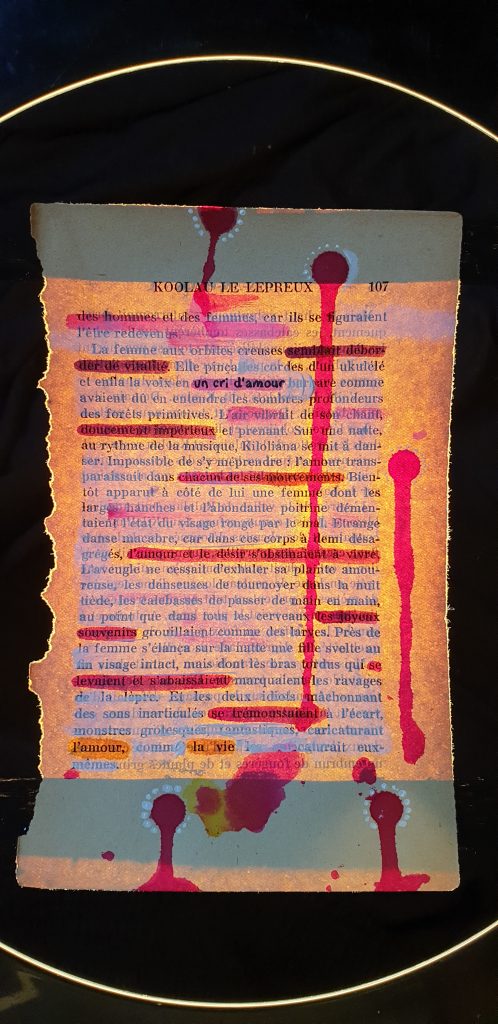 KOOLAU LE LEPREUX 107
des hommes et des femmes, car ils se figuraient
l'être redevenus.
La femme aux orbites creuses semblait débor-
der de vitalité. Elle pinça les cordes d'un ukulélé
et enfla la voix en un cri d'amour barbare comme
avaient dû en entendre les sombres profondeurs
des forêts primitives. L'air vibrait de son chant,
doucement impérieux et prenant. Sur une natte,
au rythme de la musique, Kiloliana se mit à dan-
ser. Impossible de s'y méprendre : l'amour trans-
paraissait dans chacun de ses mouvements. Bien-
tôt apparut à côté de lui une femme dont les
larges hanches et l'abondante poitrine démen-
taient l'état du visage rongé par le mal. Etrange
danse macabre, car dans ces corps à demi désa-
grégés, l'amour et le désir s'obstinaient à vivre.
L'aveugle ne cessait d'exhaler sa plainte amou-
reuse, les danseuses de tournoyer dans la nuit
tiède, les calebasses de passer de main en main,
au point que dans tous les cerveaux les joyeux
souvenirs grouillaient comme des larves. Près de
la femme s'élança sur la natte une fille svelte au
fin visage intact, mais dont les bras tordus qui se
levaient et s'abaissaient marquaient les ravages
de la lèpre. Et les deux idiots mâchonnant
des sons inarticulés se trémoussaient à l'écart,
monstres grotesques, fantastiques, caricaturant
l'amour, comme la vie caricaturait eux-
mêmes.